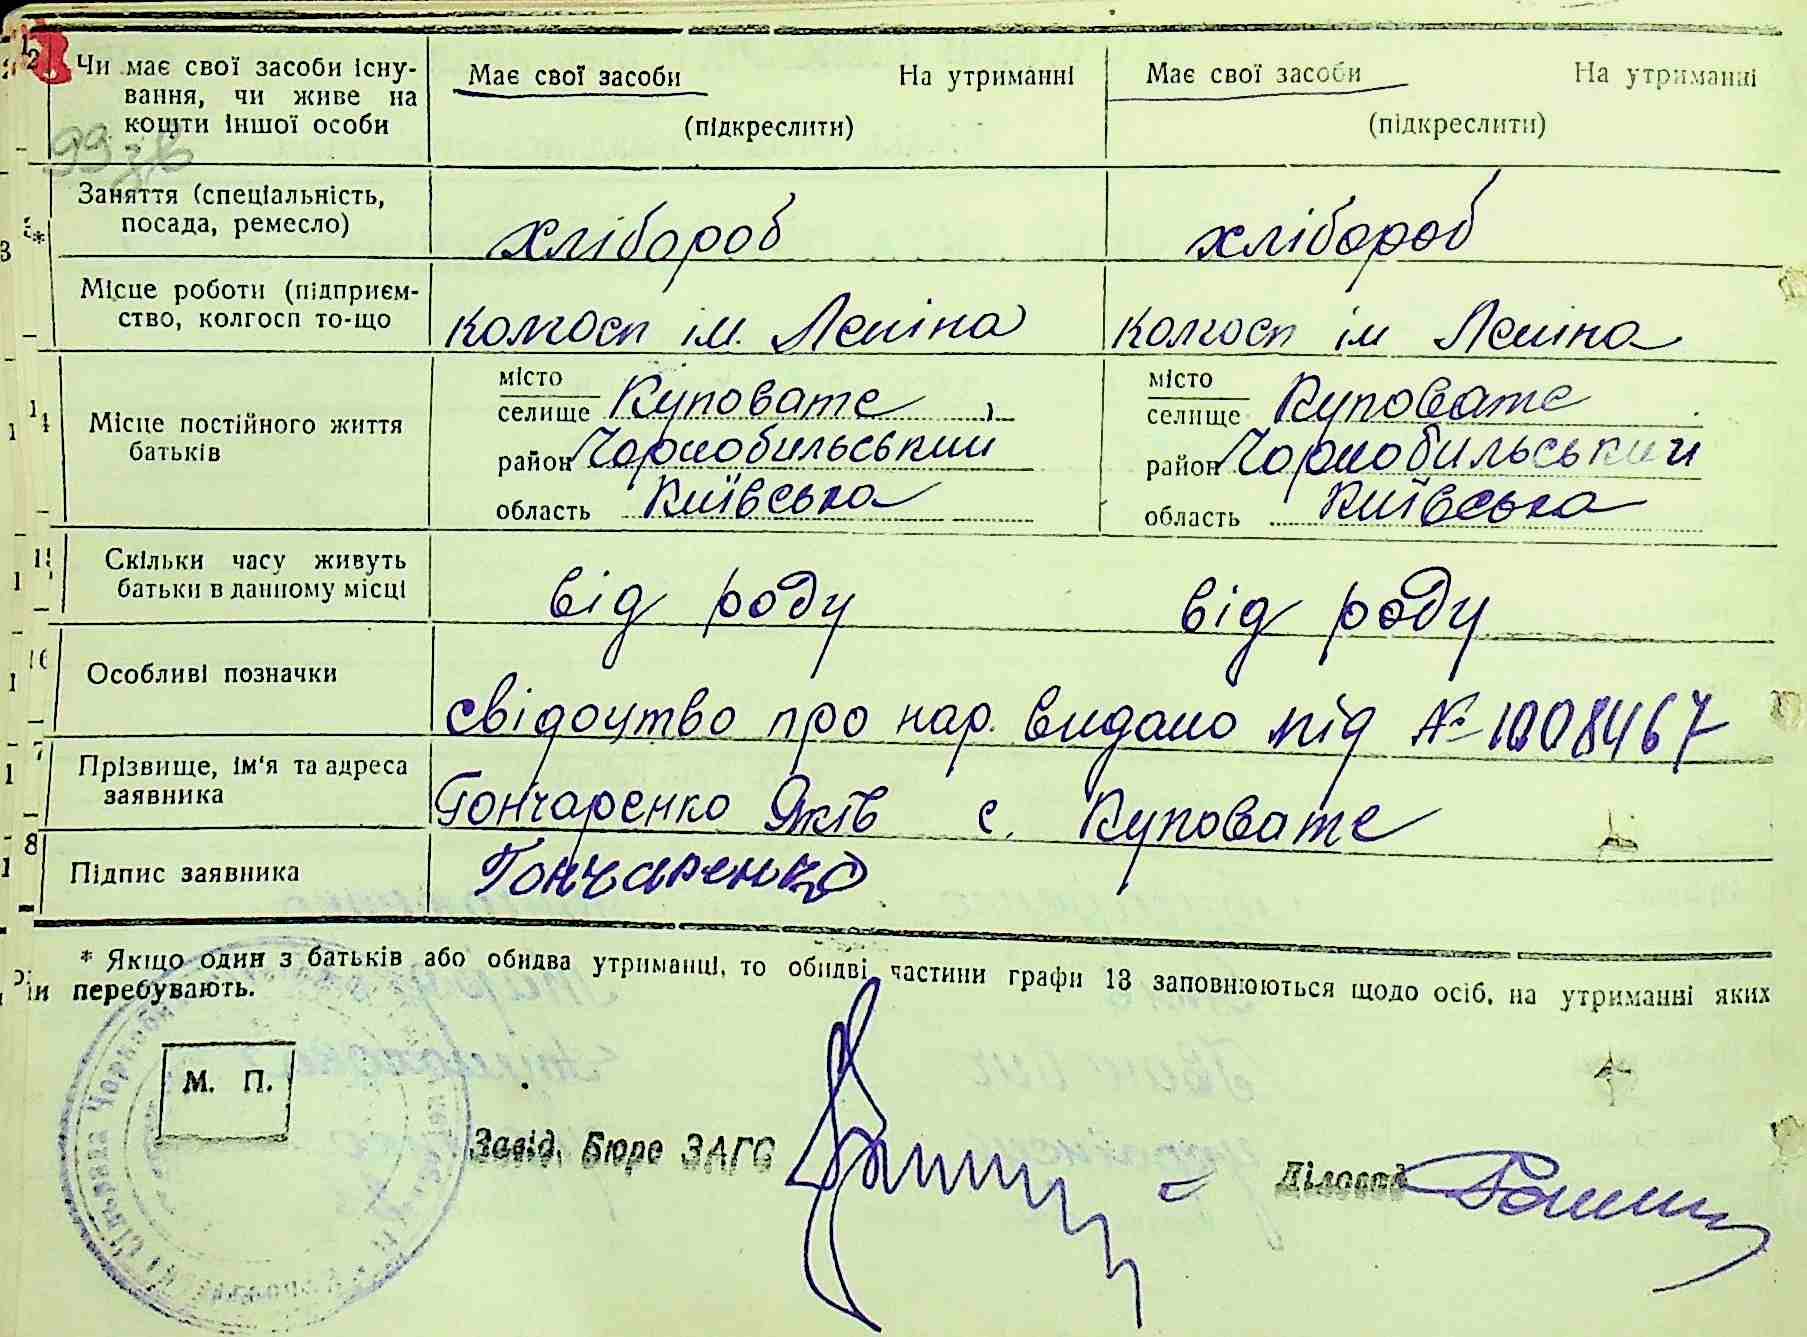 12 Чи має свої засоби існу- Має свої засоби На утриманні Має свої засоби На утриманні
вання, чи живе на
кошти іншої особи (підкреслити) (підкреслити)
99
Заняття (спеціальність,
посада, ремесло) хлібороб хлібороб
Місце роботи (підприєм-
ство, колгосп то-що колгосп ім. Леніна колгосп ім Леніна
місто місто
Місце постійного життя селище Куповате селище Куповате
батьків район Чорнобильський район Чорнобильський
область Київська область Київська
Скільки часу живуть
батьки в данному місці від роду від роду
16 Особливі позначки
свідоцтво про нар. видано під № 1008467
Прізвище, ім'я та адреса
заявника Гончаренко Яків с. Куповате
Підпис заявника Гончаренко
* Якщо один з батьків або обидва утриманці, то обидві частини графи 13 заповнюються щодо осіб, на утриманні яких
перебувають.
М. П.
Завід. Бюро ЗАГС Діловод